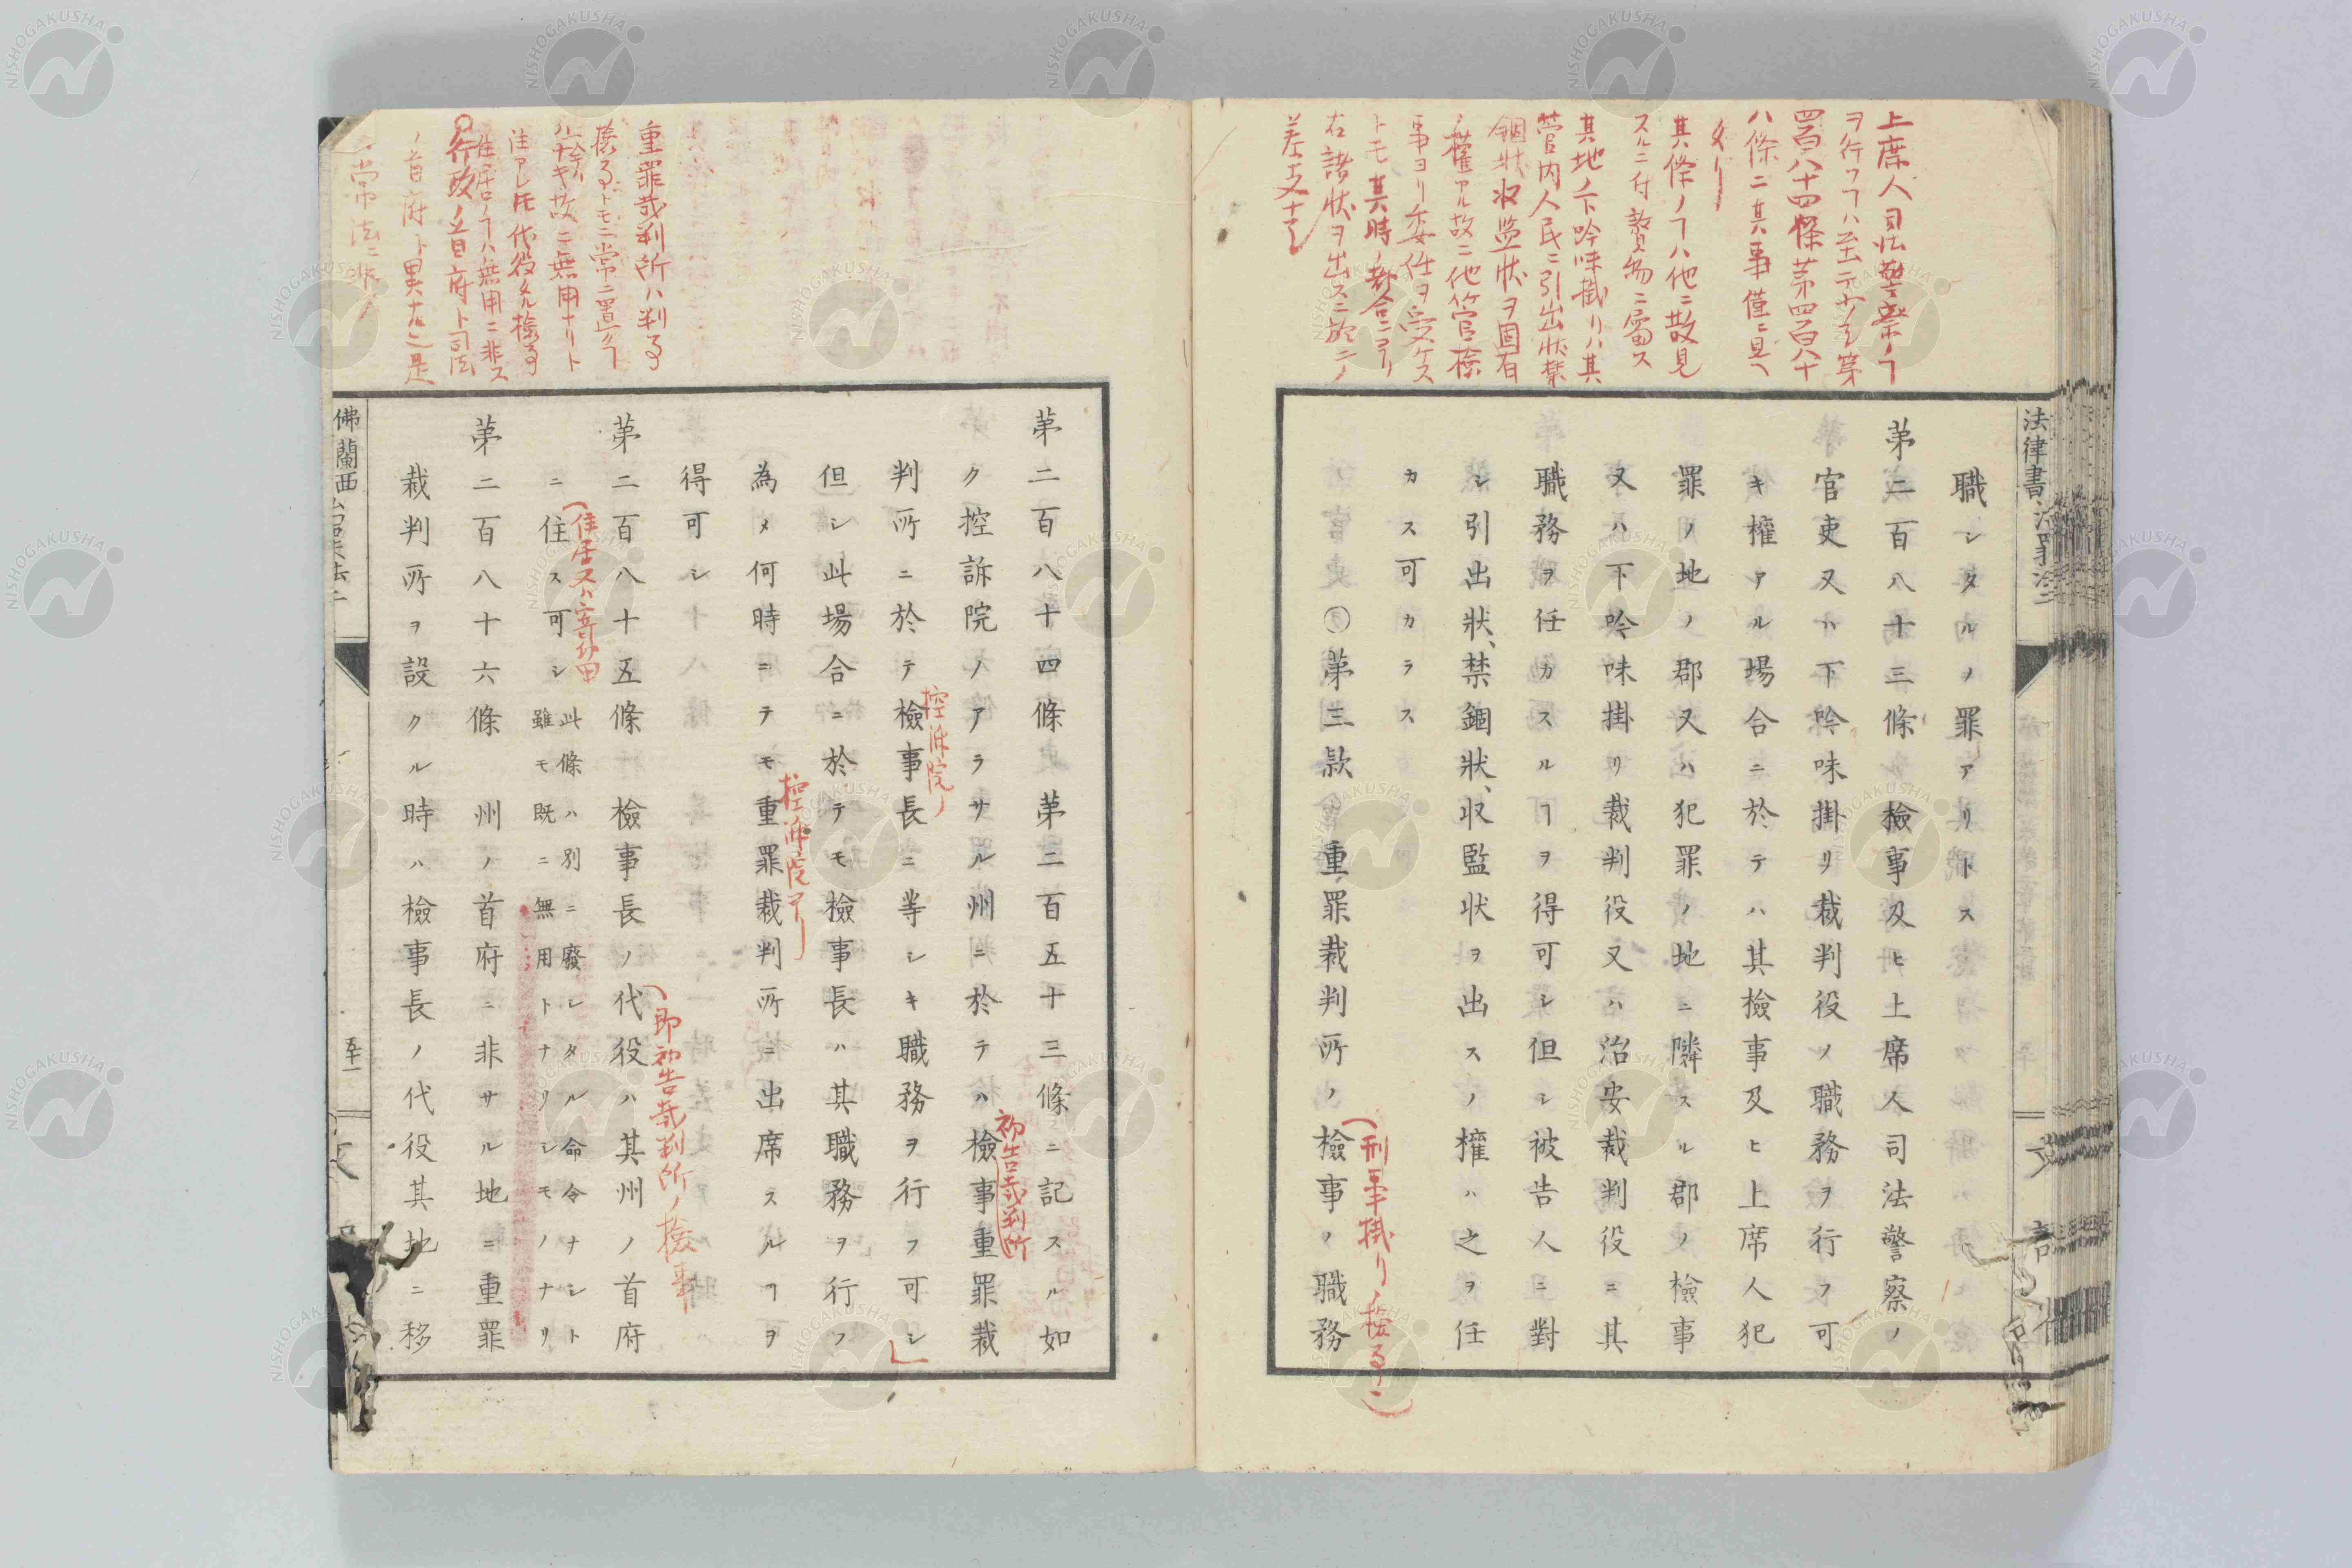 上席人司法警察ノヿ
ヲ行フヿハ至テ少シ第
四百八十四條第四百八十
八條ニ其事僅ニ見ヘ
タリ
其條ノヿハ他ニ散見
スルニ付贅物ニ属ス
其地ノ下吟味掛リハ其
管内人民ニ引出状禁
錮状収監状ヲ固有
ノ權アル故ニ他管檢
事ヨリ委任ヲ受ケス
トモ其時ノ都合ニヨリ
右諸状ヲ出スニ於テノ
差支ナシ
法律書
職シタルノ罪アリトス
第二百八十三條 檢事及ヒ上席人司法警察ノ
官吏又ハ下吟味掛リ裁判役ノ職務ヲ行フ可
キ權アル場合ニ於テハ其檢事及ヒ上席人犯
罪ノ地ノ郡又ハ犯罪ノ地ニ隣スル郡ノ檢事
又ハ下吟味掛リ裁判役又ハ治安裁判役ニ其
職務ヲ任カスルヿヲ得可シ但シ被告人ニ對
シ引出狀、禁錮狀、収監状ヲ出スノ權ハ之ヲ任
カス可カラス
〇第三款 重罪裁判所ノ檢事ノ職務
(刑事掛リノ檢事)
重罪裁判所ハ判事
檢事トモニ常ニ置クヿ
ナキ故ニ無用ナリト
注アレ𪜈代役タル檢事
住居ノヿハ無用ニ非ス
行政ノ首府ト司法
ノ首府ト異ナル是
常法ニ非ス
第二百八十四條 第二百五十三條ニ記スル如
ク控訴院ノアラサル州ニ於テハ檢事重罪裁
初告裁判所
判所ニ於テ檢事長ニ等シキ職務ヲ行フ可シ
控訴院ノ
但シ此場合ニ於テモ檢事長ハ其職務ヲ行フ
為メ何時ニテモ重罪裁判所ニ出席スルヿヲ
控訴院ヨリ
得可シ
第二百八十五條 檢事長ノ代役ハ其州ノ首府
(即初告裁判所ノ檢事
ニ住ス可シ 此條ハ別ニ廢シタル命令ナシト
雖モ既ニ無用トナリシモノナリ
第二百八十六條 州ノ首府ニ非サル地ニ重罪
裁判所ヲ設クル時ハ檢事長ノ代役其地ニ移
佛蘭西